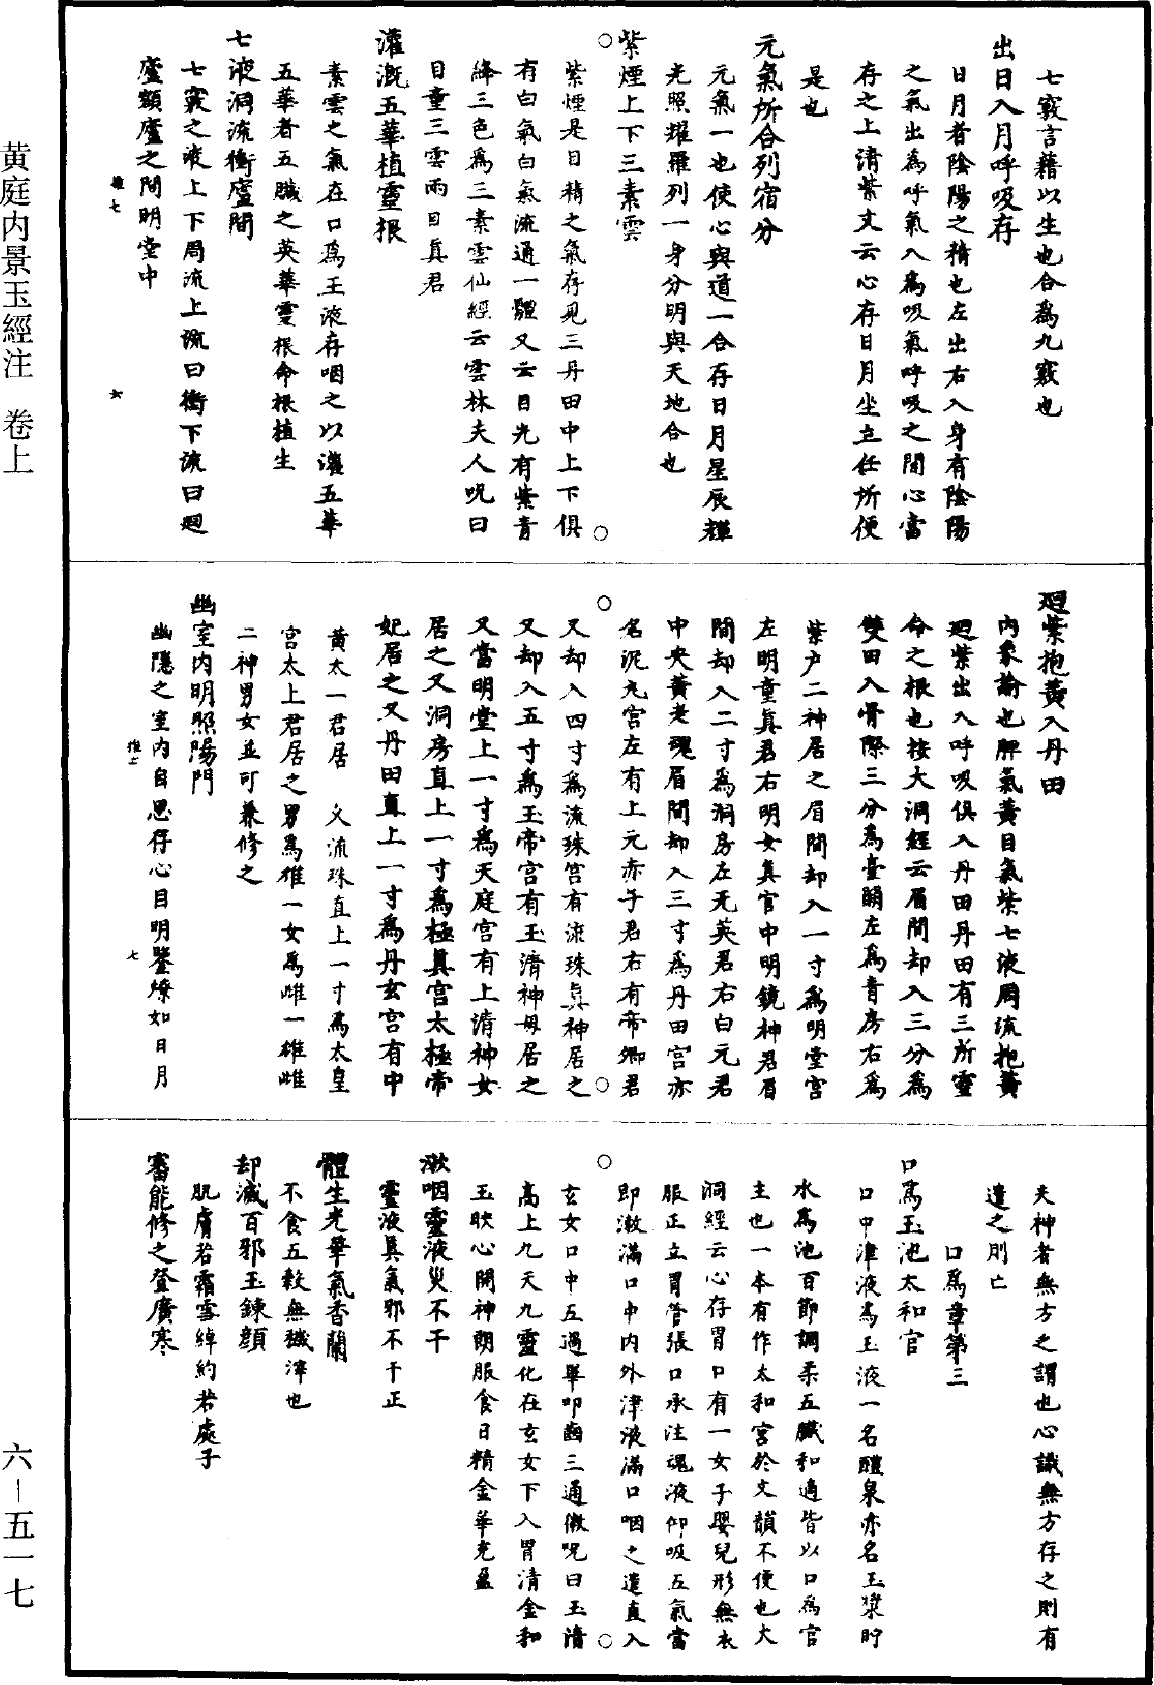 黄庭内景玉經注　卷上
六—五一七
七竅言藉以生也合爲九竅也
出日入月呼吸存
日月者陰陽之精也左出右入身有陰陽
之氣出爲呼氣入爲吸氣呼吸之間心當
存之上清紫文云心存日月坐立任所便
是也
元氣所合列宿分
元氣一也使心與道一合存日月星辰輝
光照耀羅列一身分明與天地合也
紫煙上下三素雲
紫煙是目精之氣存見三丹田中上下俱
有白氣白氣流通一體又云目光有紫青
絳三色爲三素雲仙經云雲林夫人呪曰
目童三雲雨目真君
灌溉五華植靈根
素雲之氣在口爲玉液存咽之以灌五華
五華者五臟之英華靈根命根植生
七液洞流衝廬間
七竅之液上下周流上流曰衝下流曰廻
廬頞廬之間明堂中
推七
六
廻紫抱黃入丹田
內象諭也脾氣黃目氣紫七液周流抱黃
廻紫出入呼吸俱入丹田丹田有三所靈
命之根也按大洞經云眉間却入三分爲
雙田入骨際三分爲臺闕左爲青房右爲
紫户二神居之眉間却入一寸爲明堂宮
左明童真君右明女真官中明鏡神君眉
間却入二寸爲洞房左无英君右白元君
中央黃老魂眉間却入三寸爲丹田宮亦
名泥丸宮左有上元赤子君右有帝卿君
又却入四寸爲流珠宮有流珠真神居之
又却入五寸爲玉帝宮有玉清神母居之
又當明堂上一寸爲天庭宮有上清神女
居之又洞房直上一寸爲極真宮太極帝
妃居之又丹田直上一寸爲丹玄宮有中
黃太一君居　又流珠直上一寸爲太皇
宮太上君居之男爲雄一女爲雌一雄雌
二神男女並可兼修之
幽室内明照陽門
幽隱之室内自思存心目明鑒燎如日月
推七
七
夫神者無方之謂也心識無方存之則有
遣之則亡
口爲章第三
口爲玉池太和官
口中津液爲玉液一名醴泉亦名玉漿貯
水爲池百節調柔五臟和適皆以口爲官
主也一本有作太和宮於文韻不便也大
洞經云心存胃口有一女子嬰兒形無衣
服正立胃管張口承注魂液仰吸五氣當
即漱滿口中内外津液滿口咽之遣直入
玄女口中五過畢叩齒三通微呪曰玉清
高上九天九靈化在玄女下入胃清金和
玉映心開神朗服食日精金華充盈
漱咽靈液災不干
靈液真氣邪不干正
體生光華氣香蘭
不食五穀無穢滓也
却滅百邪玉鍊顔
肌膚若霜雪綽約若處子
審能修之登廣寒